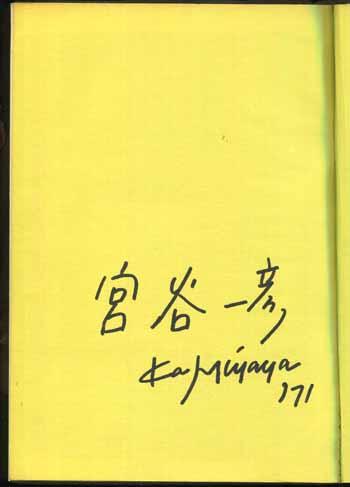 宮谷一彦
Ka Miyaya
'71